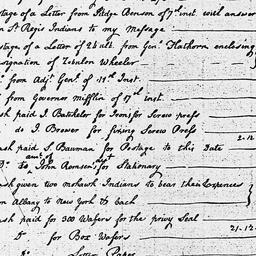 stage of a Letter from Judge Benson of 7th inst. with answer
m St Regis Indians to my Message
stage of a Letter of 24 ult. from Genl. Hathorn enclosing
signation of Zebulon Wheeler
from Adjt. Genl. of 19th Inst.
from Governor Mifflin of 17 inst.
ash paid J. Batchelor for Irons for Screw press
do J. Brower for fixing Screw Press
2-12
ash paid S. Bauman for Postage to this Date
Do. to John Ramsen for Stationary
ash given two mohawk Indians to bear their Expences
m Albany to New York & back
ash paid for 300 Wafers for the privy Seal
21-12
Do for Box Wafers
Do Letter Paper